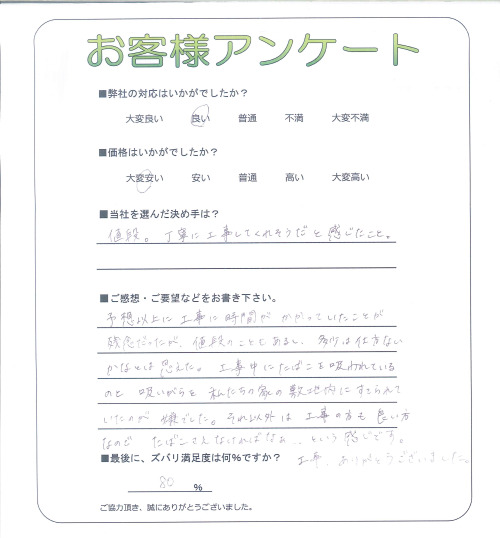 お客様アンケート
■弊社の対応はいかがでしたか?
大変良い 良い 普通 不満 大変不満
■価格はいかがでしたか?
大変安い 安い 普通 高い 大変高い
■当社を選んだ決め手は?
値段。丁寧に工事してくれそうだと感じたこと。
■ご感想・ご要望などをお書き下さい。
予想以上に工事に時間がかかっていたことが
残念だったが、値段のこともあるし、多少は仕方ない
かなとは思えた。工事中にたばこを吸われている
のと吸いがらを私たちの家の敷地内にすてられて
いたのが嫌でした。それ以外は工事の方も良い方
なので たばこさえなければなぁ..という感じです。
工事、ありがとうございました。
■最後に、ズバリ満足度は何%ですか?
80 %
ご協力頂き、誠にありがとうございました。